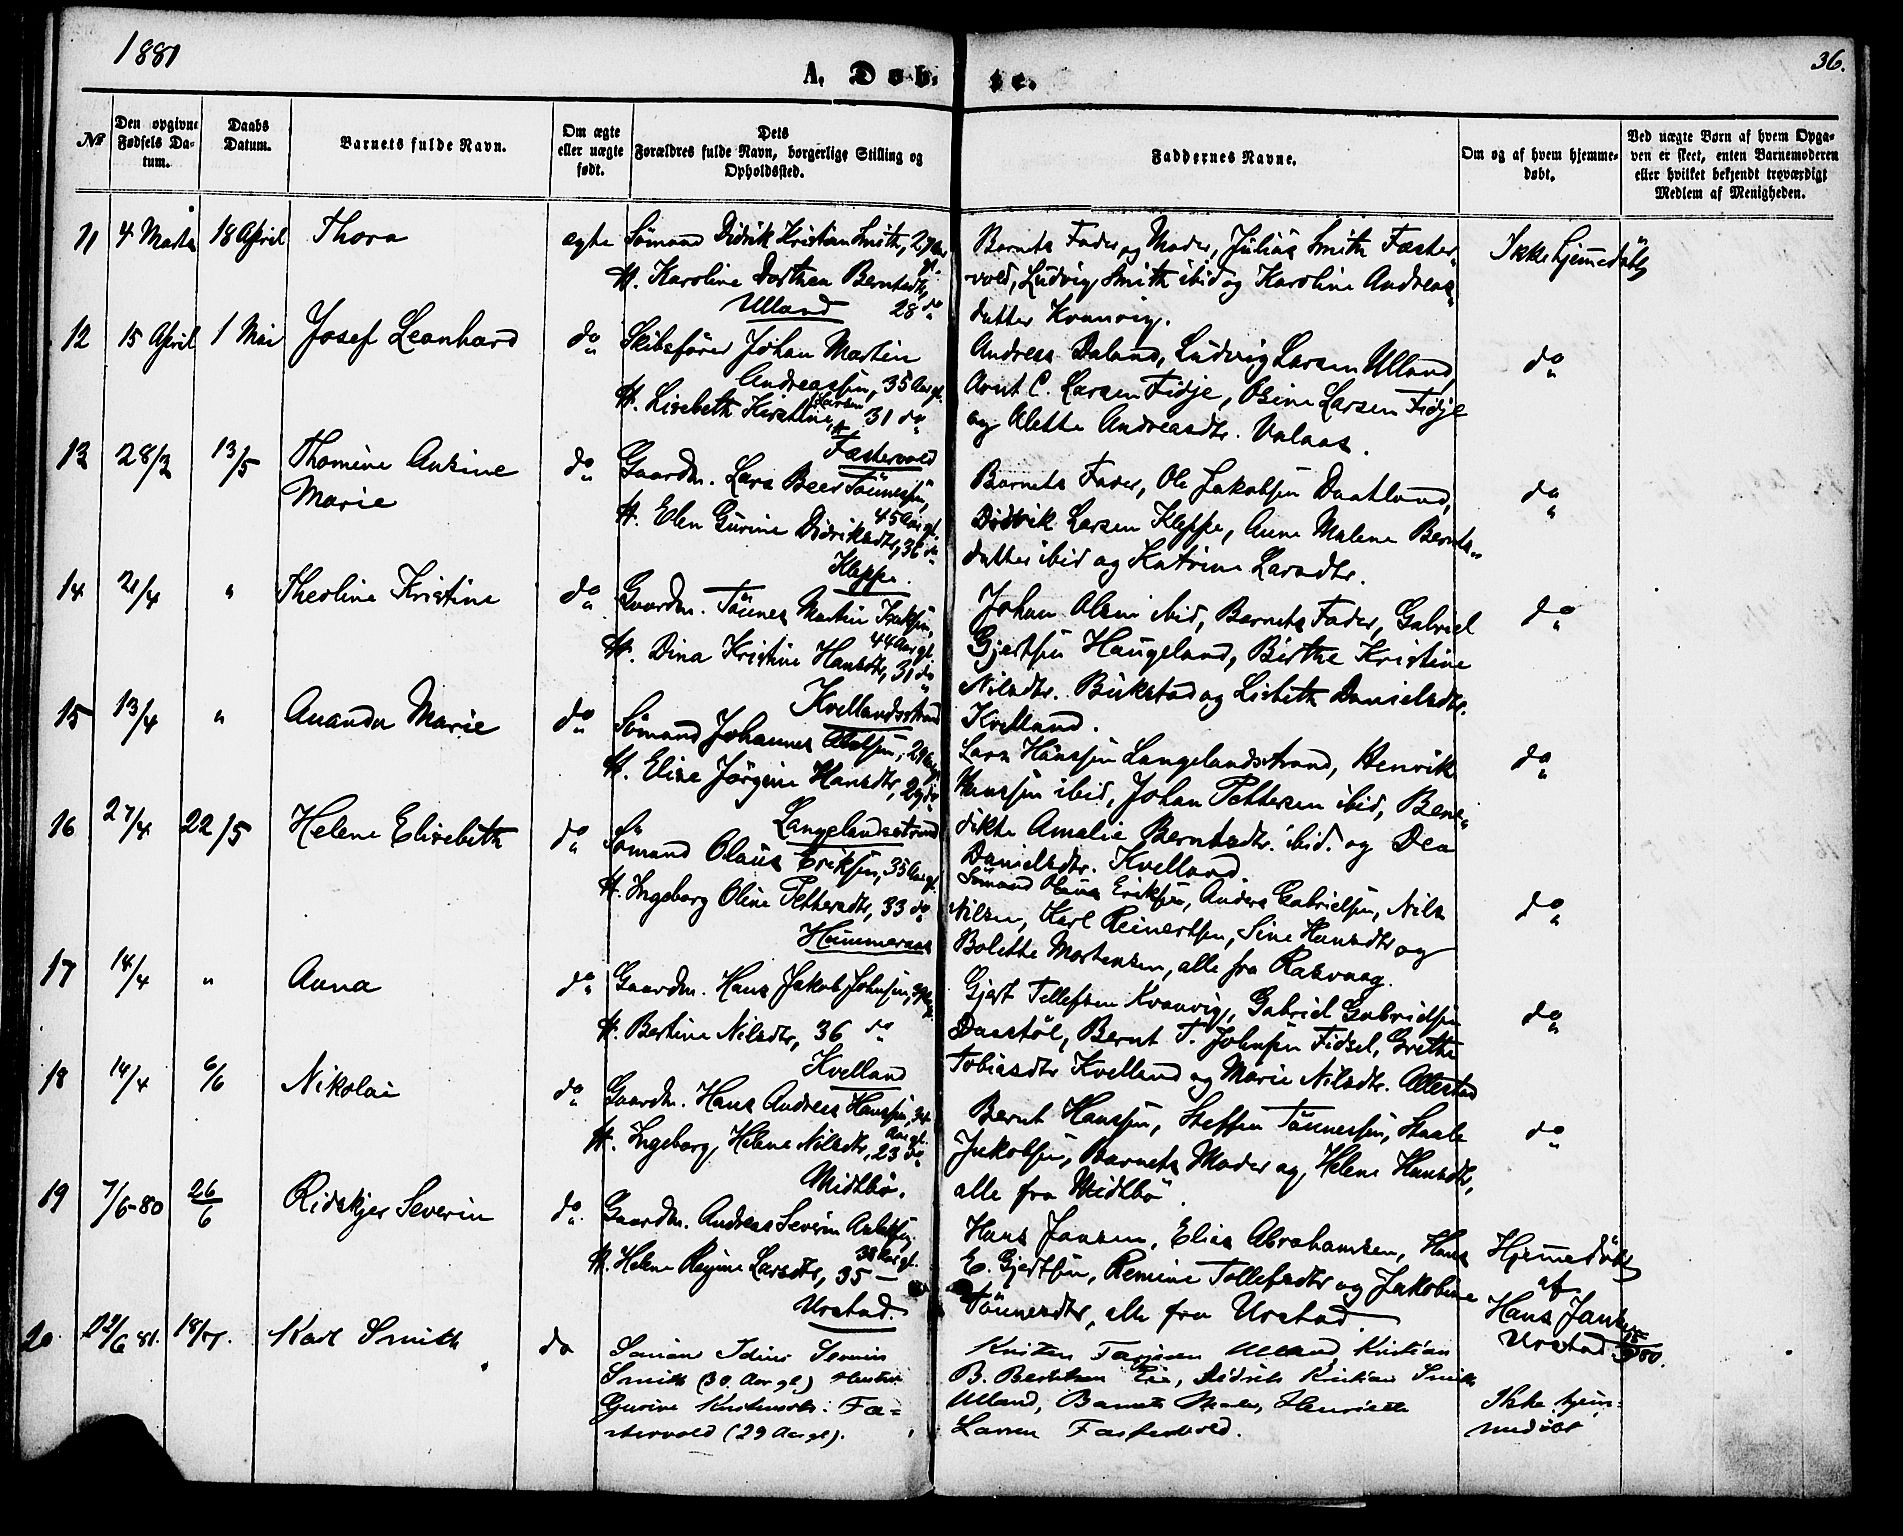 1881
36.
A. Døb-
te.
No
Den opgivne Fødsels Da-
tum.
Daabs
Datum.
Barnets fulde Navn.
Om ægte
eller uægte
født.
Dets
Forældres fulde Navn, borgerlige Stilling og
Opholdssted.
Faddernes Navne.
Om og af hvem hjemme-
døbt.
Ved uægte Børn af hvem Opga-
ven er skeet, enten Barnemoderen
eller hvilket bekjendt troværdigt
Medlem af Menigheden.
11 4 Marts 18 April Thora ægte Sømand Didrik Kristian Smith, 29 Aar
gl.
H. Karoline Dorthea Berntsdtr,
Ulland 28 do
Barnets Fader og Moder, Julius Smith Fæster-
vold, Ludvig Smith ibid og Karoline Andreas-
datter Kvanvig.
Ikke hjemmedøbt
12 15 April 1 Mai Josef Leonhard do Skibsfører Johan Martin
Andreassen, 35 Aar gl.
H. Lisebeth Kirstine Larsen, 31 do
Fæstervold
Andreas Daland, Ludvig Larsen Ulland,
Arnt C. Larsen Fidje, Osine Larsen Fidje
og Alette Andreasdtr. Valaas.
do
13 28/3 13/5 Thomine Ansine
Marie
do Gaardm. Lars Beer Tönnessen,
45 Aar gl.
H. Elen Gurine Didriksdtr, 36 do
Kleppe.
Barnets Fader, Ole Jakobsen Daatland,
Didrik Larsen Kleppe, Anne Malene Bernts-
datter ibid og Katrine Larsdtr.
do
14 21/4 " Theoline Kristine do Gaardm. Tönnes Martin Isaksen,
44 Aar gl.
H. Dina Kristine Hansdtr, 31 do
Kvellandsstrand
Johan Olsen ibid, Barnets Fader, Gabriel
Gjertsen Haugeland, Birthe Kristine
Nilsdtr. Birkstad og Lisbeth Danielsdtr.
Kvelland.
do
15 13/4 " Ananda Marie do Sömand Johannes Olofsen, 29 Aar gl.
H. Elise Jörgine Hansdtr, 29 do
Langelandsstrand
Lars Hanssen Langelandsstrand, Henrik
Hanssen ibid, Johan Pettersen ibid, Bene-
dikte Amalie Berntsdtr. ibid. og Dea
Danielsdtr. Kvelland.
do
16 27/4 22/5 Helene Elisebeth do Sömand Olaus Eriksen, 35 Aar gl.
H. Ingeborg Oline Pettersdtr, 33 do
Hummeraas
Sömand Olaus Eriksen, Anders Gabrielsen, Nils
Nilsen, Karl Reinertsen, Sine Hansdtr og
Bolette Mortensen, alle fra Rasvaag.
do
17 14/4 " Anna do Gaardm. Hans Jakob Johnsen,
H. Bertine Nilsdtr, 36 do
Kvelland
Gjert Tellefsen Kvanvig, Gabriel Gabrielsen
Daastöl, Bernt T. Johnsen Fidsel, Grethe
Tobiasdtr Kvelland og Marie Nilsdtr. Allestad
do
18 14/4 6/6 Nikolai do Gaardm. Hans Andreas Hanssen, 34
Aar gl.
H. Ingeborg Helene Nilsdtr, 23 do
Midtbö.
Bernt Hanssen, Steffen Tönnessen, Staale
Jakobsen, Barnets Moder og Helene Hansdtr,
alle fra Midtbö.
do
19 7/6-80 26/6 Ridskjer Severin do. Gaardm. Andreas Severin
38 Aar gl.
H. Helene Regine Larsdtr, 35 –
Urstad.
Hans Jansen, Elias Abrahamsen, Hans
E. Gjertsen, Remine Tollefsdtr og Jakobine
Tönnesdtr, alle fra Urstad.
Hjemmedöbt
af
Hans Jansen
Urstad
20 22/6 81. 18/7. Karl Smith do Sömand Severin
Smith (30. Aar gl.) Hustru
Gurine Fæ-
stervold (29 Aar gl).
Kristen Tarjesen Ulland, Kristian
B. Berntsen Eie, Didrik Kristian Smith
Ulland, Barnets Moder, Henriette
Larsen Fæstervold.
Ikke hjem-
medöbt